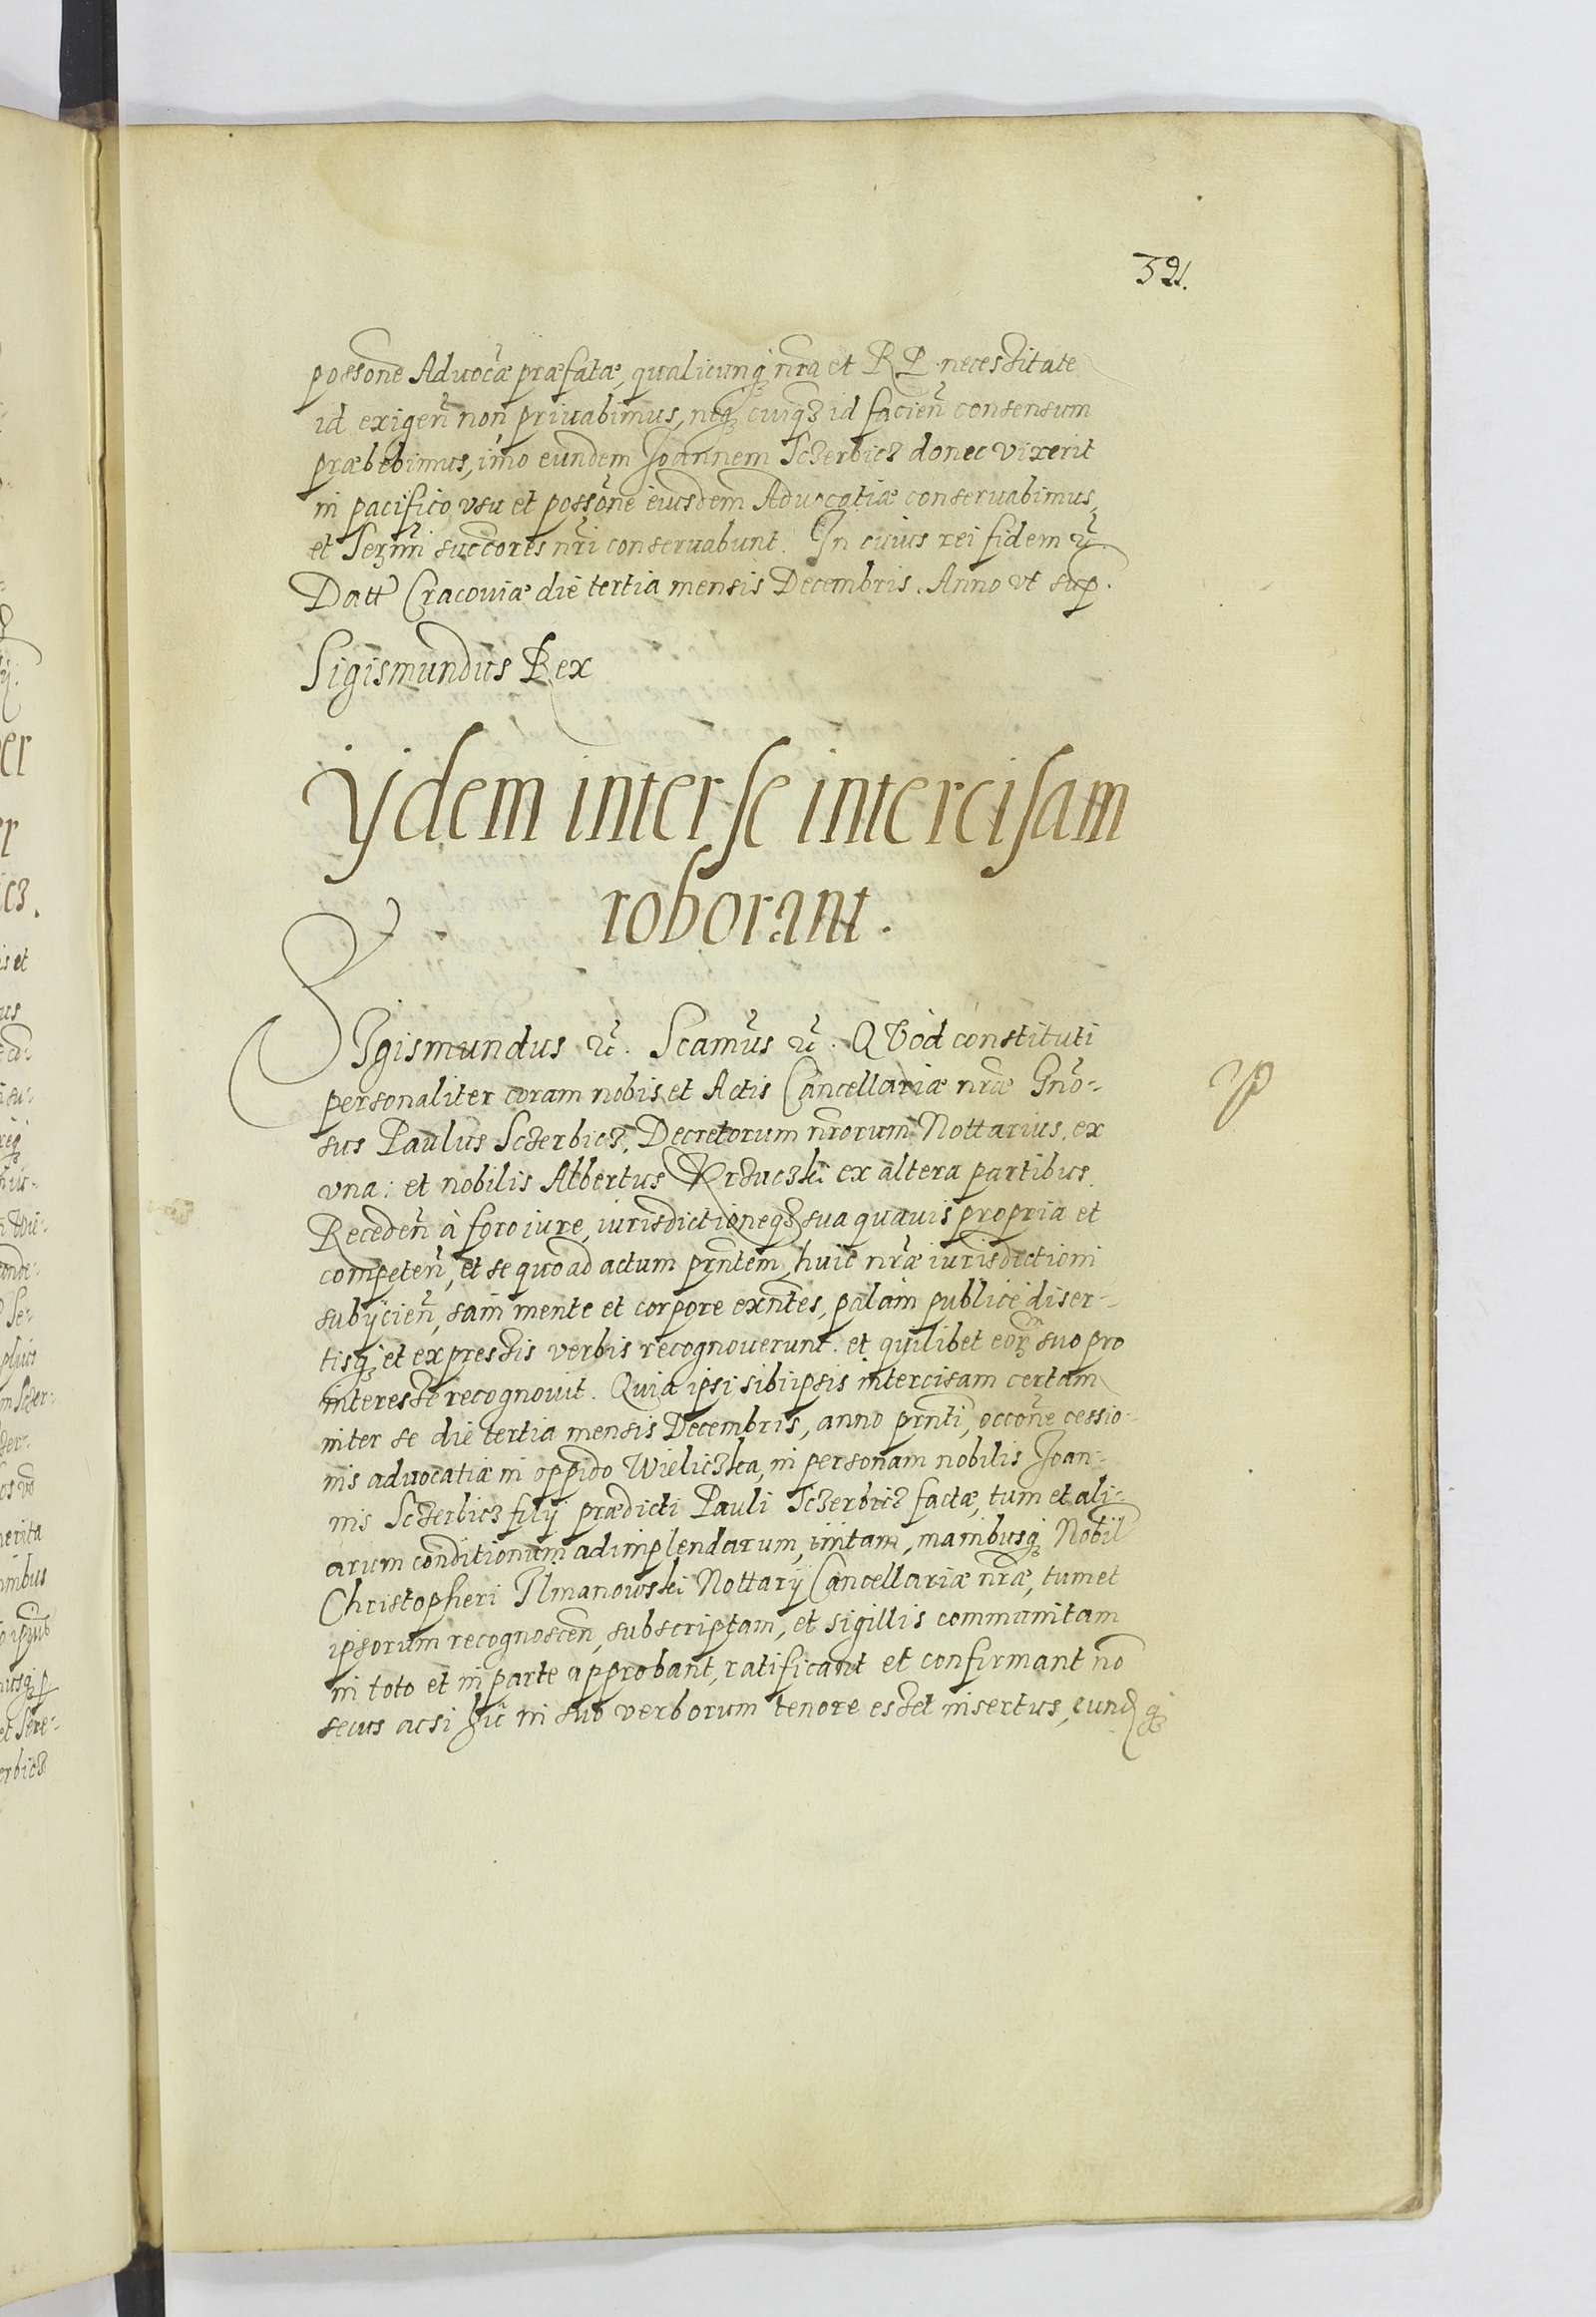 321.
possone Advocæ præfatæ, qualicunq nra et R P necessitate
id exigen non priuabimus, neq cuiq id facien consensum
præbebimus, imo eundem Joannem Sczerbicz donec vixerit
in pacifico vsu et possone eiusdem Advocatiæ conseruabimus,
et Sermi succores nri conseruabunt. In cuius rei fidem &c.
Datt Cracouiæ die tertia mensis Decembris. Anno vt sup.
Sigismundus Rex
ijdem inter se intercisam
roborant.
SIgismundus &c. Scamus &c. QVod constituti
personaliter coram nobis et Actis Cancellariæ nræ Gno-
sus Paulus Sczerbicz, Decretorum nrorum Nottarius, ex
vna: et nobilis Albertus ex altera partibus.
Receden à foro iure, iurisdictioneq sua quauis propria et
competen, et se quoad actum prntem, huic nræ iurisdictioni
subijcien, sani mente et corpore exntes, palam publice diser-
tisq et expressis verbis recognouerunt. et quilibet eor suo pro
interesse recognouit. Quia ipsi sibi ipsis intercisam certam
inter se die tertia mensis Decembris, anno prnti, occone cessio-
nis aduocatiæ in oppido Wieliczka, in personam nobilis Joan-
nis Sczerbicz filij prædicti Pauli Sczerbicz factæ, tum et ali-
arum conditionum adimplendarum, initam, manibusq Nobil
Christopheri Ilmanowski Nottarij Cancellariæ nræ, tum et
ipsorum recognoscen, subscriptam, et sigillis communitam
in toto et in parte approbant, ratificant et confirmant no
secus acsi hic in suo verborum tenore esset insertus, eundq